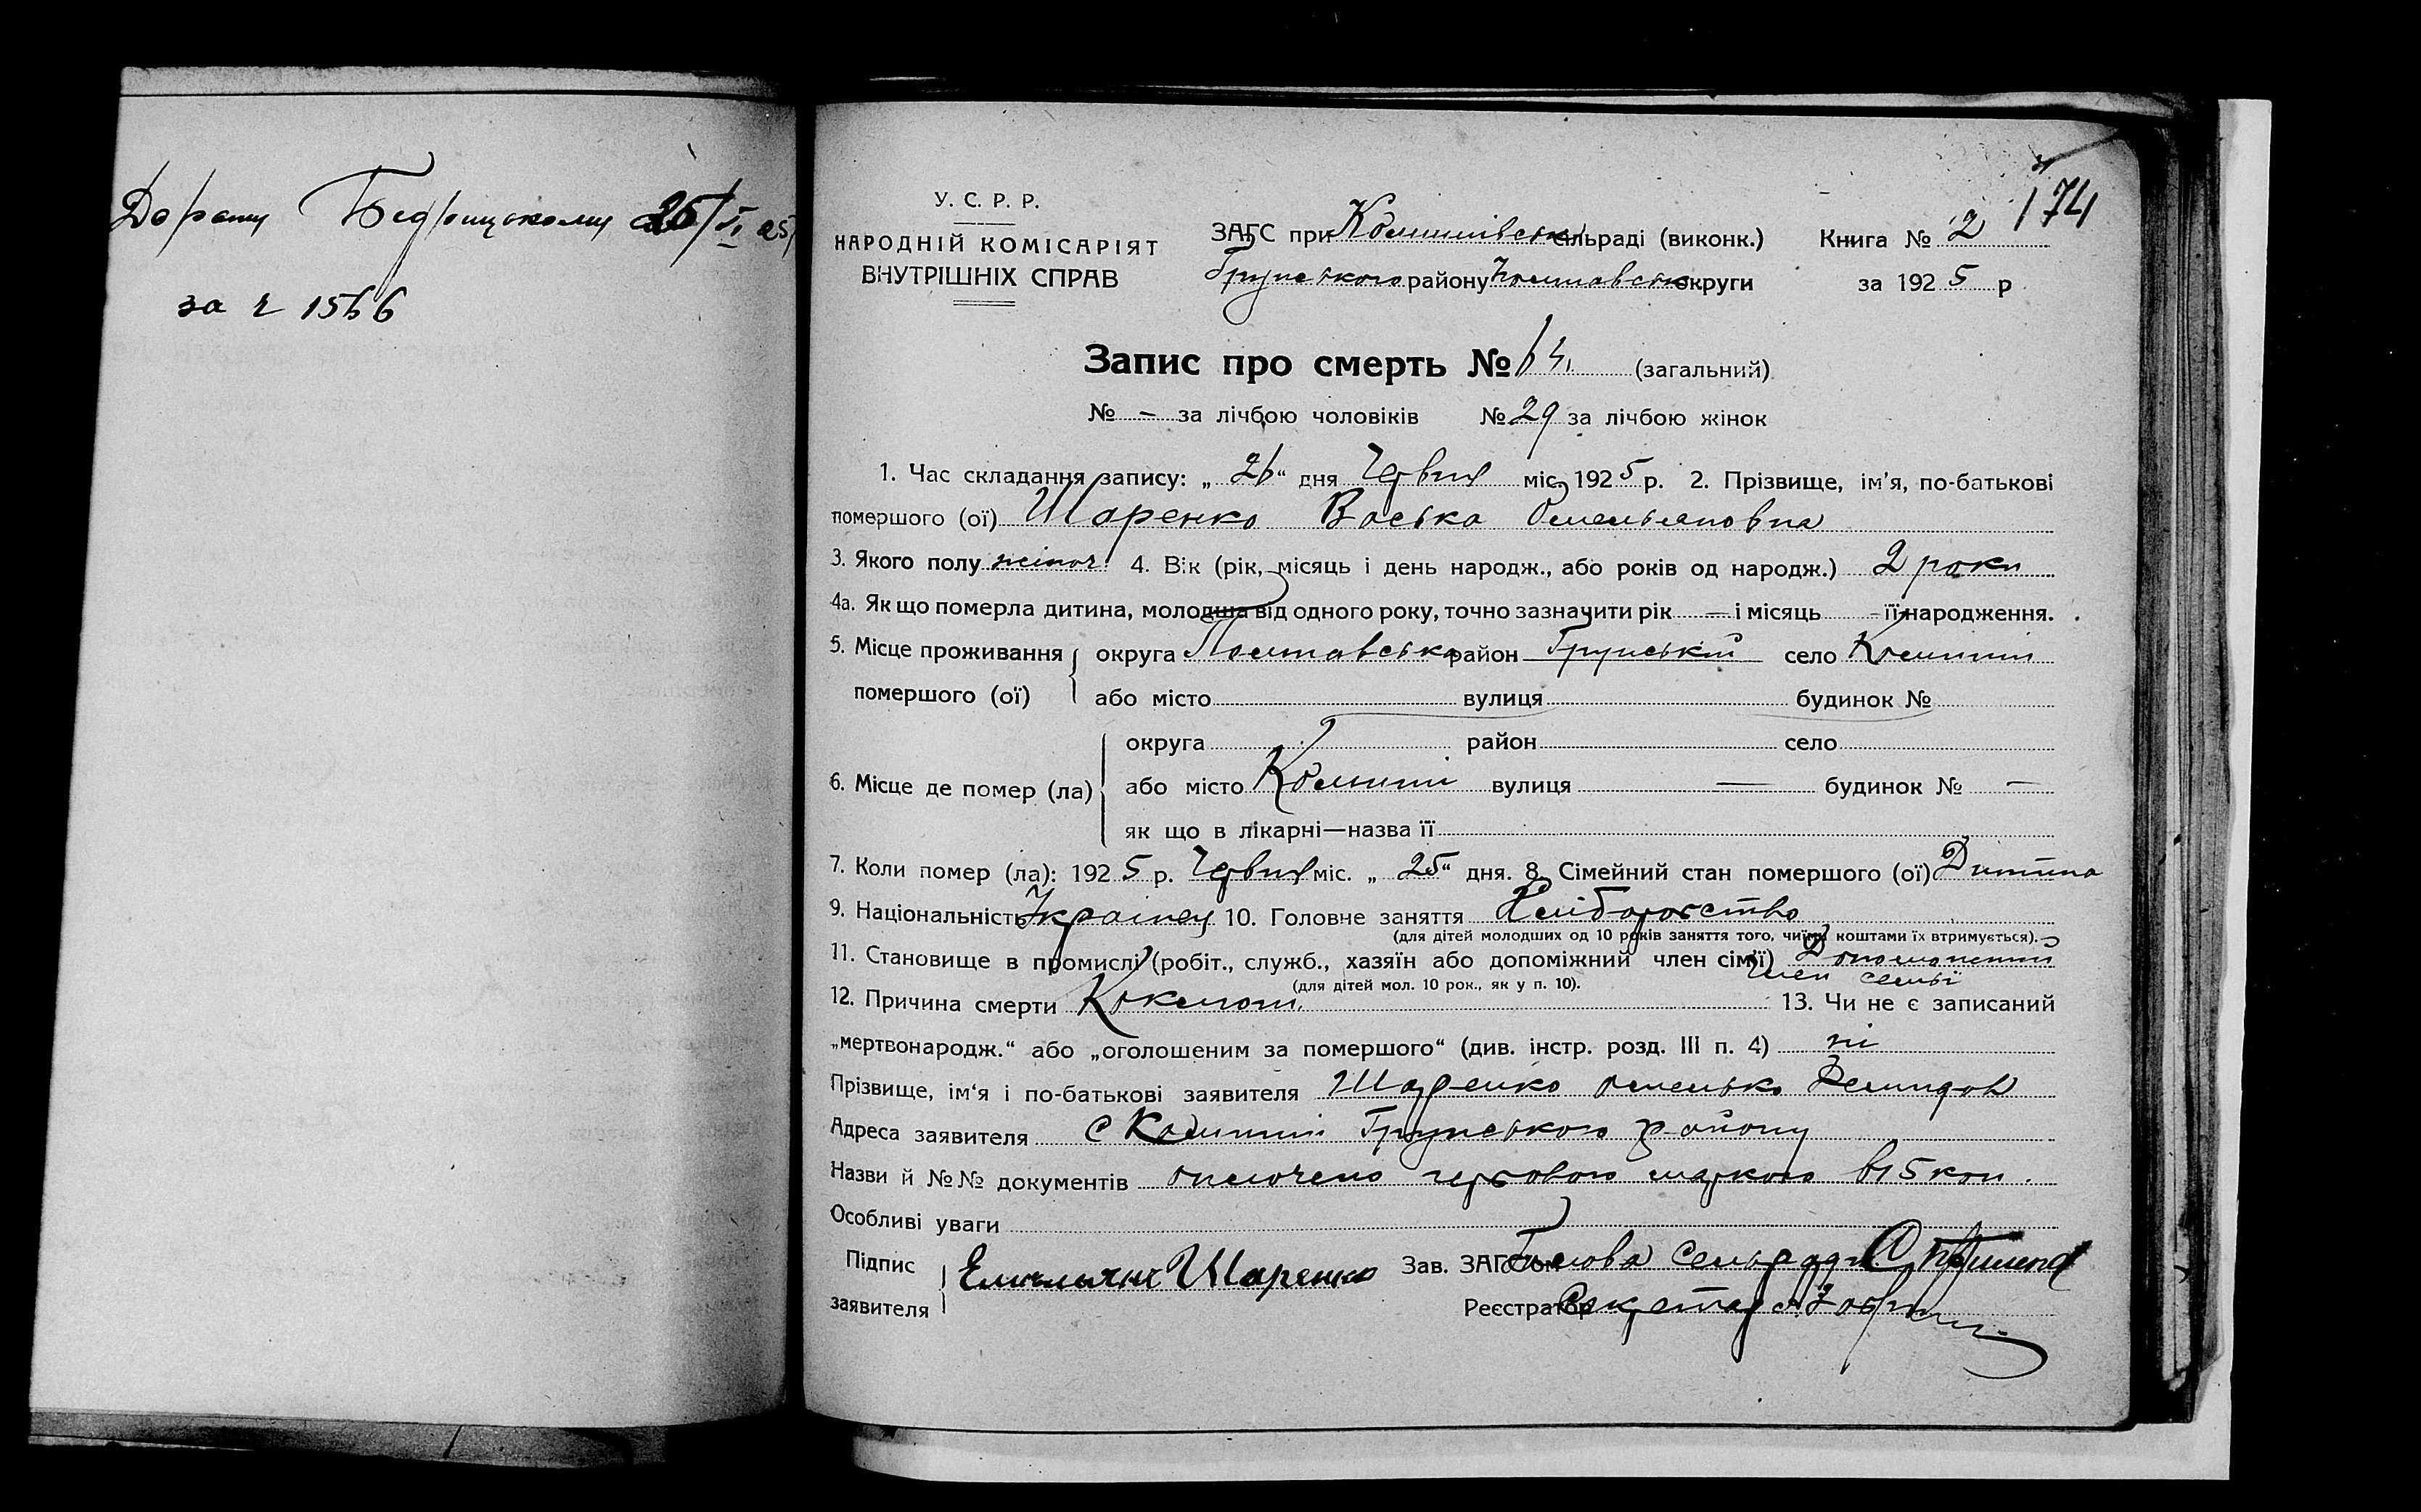 за ч 1566
174
У. С. Р. Р.
НАРОДНІЙ КОМІСАРІЯТ
ВНУТРІШНІХ СПРАВ
ЗАГС при Комишівськ сільраді (виконк.) Книга № 2
Грунського району Полтавськ округи за 1925 р
Запис про смерть № (загальний)
№ — за лічбою чоловіків № 29 за лічбою жінок
1. Час складання запису: „26“ дня Червня міс. 1925 р. 2. Прізвище, ім'я, по-батькові
помершого (ої) Шаренко Васька Омельяновна
3. Якого полу жіноч. 4. Вік (рік, місяць і день народж., або років од народж.) 2 роки
4а. Як що померла дитина, молодша від одного року, точно зазначити рік — і місяць - її народження.
5. Місце проживання округа Полтавська район Грунський село Комиші
помершого (ої) або місто вулиця будинок №
округа район село
6. Місце де помер (ла) або місто Комиші вулиця — будинок № —
як що в лікарні—назва її
7. Коли помер (ла): 1925 р. Червня міс. „25“ дня. 8. Сімейний стан помершого (ої) Дитина
9. Національність Українец 10. Головне заняття Хліборобство
(для дітей молодших од 10 років заняття того, чиїми коштами їх втримується).
11. Становище в промислі (робіт., служб., хазяїн або допоміжний член сімї) Допоможний
член семьї
(для дітей мол. 10 рок., як у п. 10).
12. Причина смерти Коклюш. 13. Чи не є записаний
„мертвонародж.“ або „оголошеним за помершого“ (див. інстр. розд. III п. 4) ні
Прізвище, ім'я і по-батькові заявителя Шаренко Омелько Демидов
Адреса заявителя с Комиші Грунського району
Назви й №№ документів оплочено гербовою маркою в 15 коп.
Особливі уваги
Підпис Емельян Шаренко Зав. ЗАГСом Голова Сельради
заявителя Реєстратор Секретарь